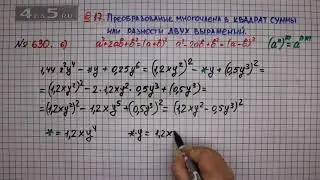 4ГДЗ.RU
§ 17. Преобразование многочлена в квадрат суммы
или разности двух выражений.
№ 630. в) a²+2ab+b²=(a+b)² a²-2ab+b²=(a-b)² (aⁿ)ᵐ=aⁿᵐ
1,44x²y⁴ - *y + 0,25y⁶ = (1,2xy²)² - *y + (0,5y³)² =
= (1,2xy²)² - 2·1,2xy²·0,5y³ + (0,5y³)² =
= (1,2xy²)² - 1,2xy⁵ + (0,5y³)² = (1,2xy² - 0,5y³)²
* = 1,2xy⁴ *y = 1,2x